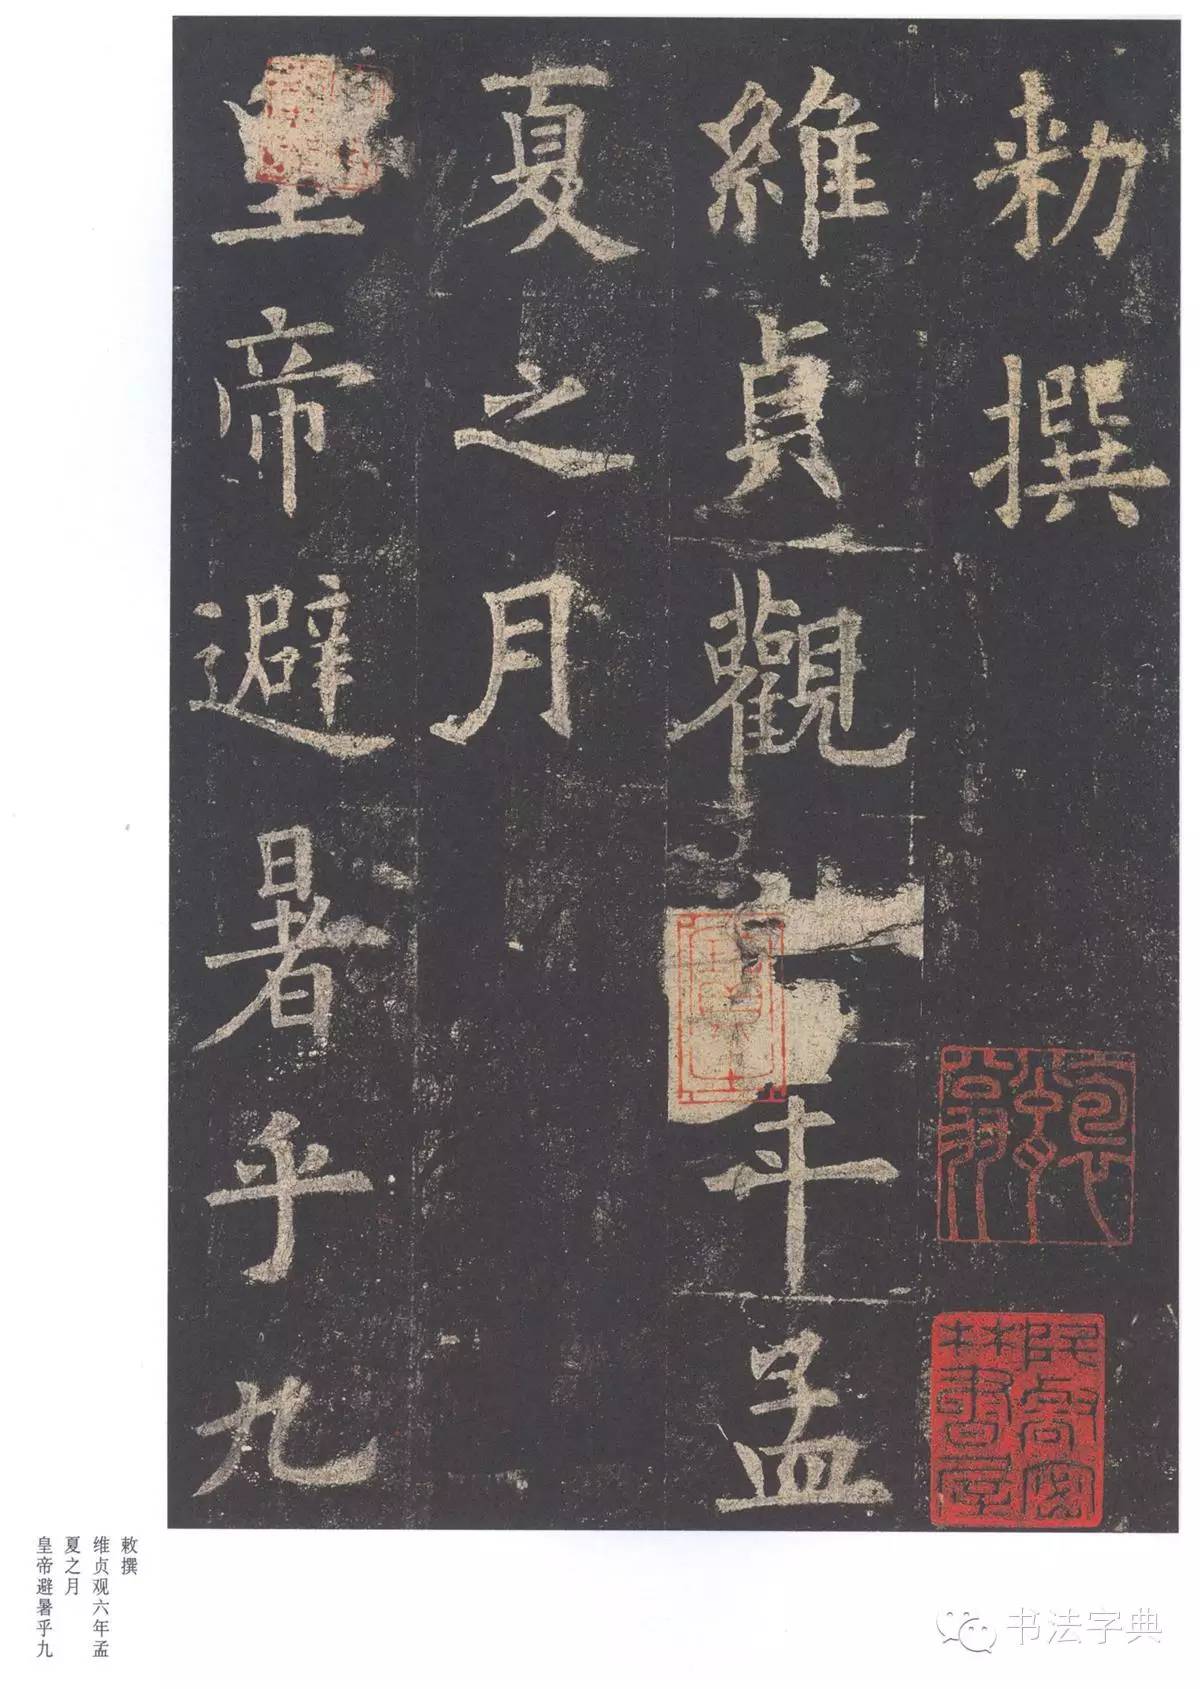 勑撰
維貞觀六年孟
夏之月
皇帝避暑乎九
敕撰
维贞观六年孟
夏之月
皇帝避暑乎九
书法字典